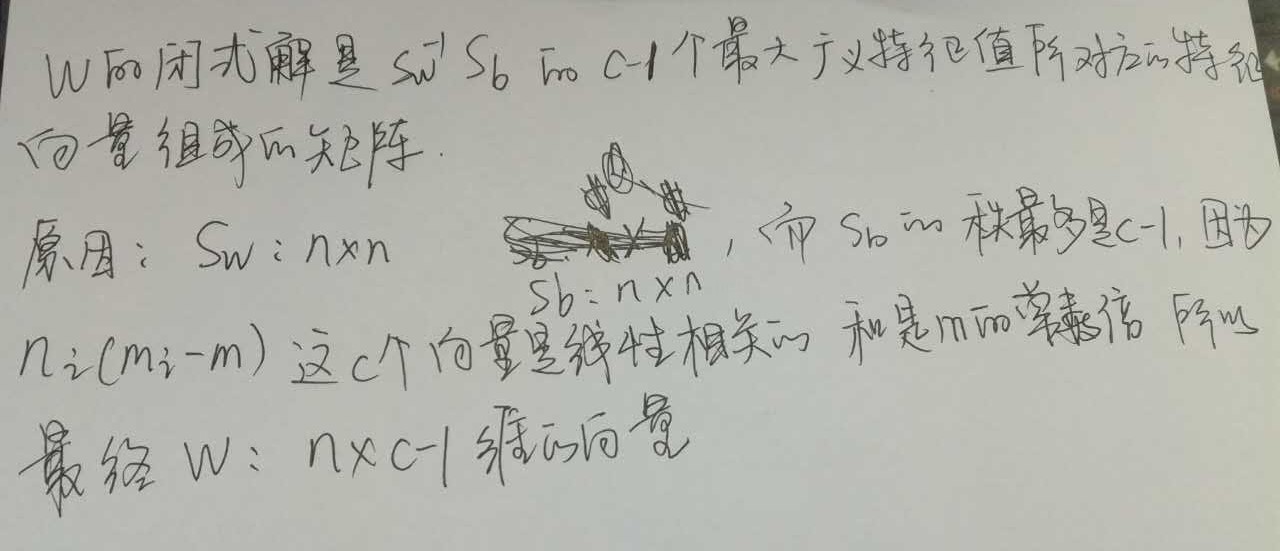 W的闭式解是 Sw⁻¹Sb 的 c-1个最大广义特征值所对应的特征
向量组成的矩阵.
原因: Sw: n×n Sb: n×n ,而 Sb 的秩最多是c-1,因为
nᵢ(mᵢ-m) 这c个向量是线性相关的 和是m的常数倍 所以
最终 W: n×c-1 维的向量